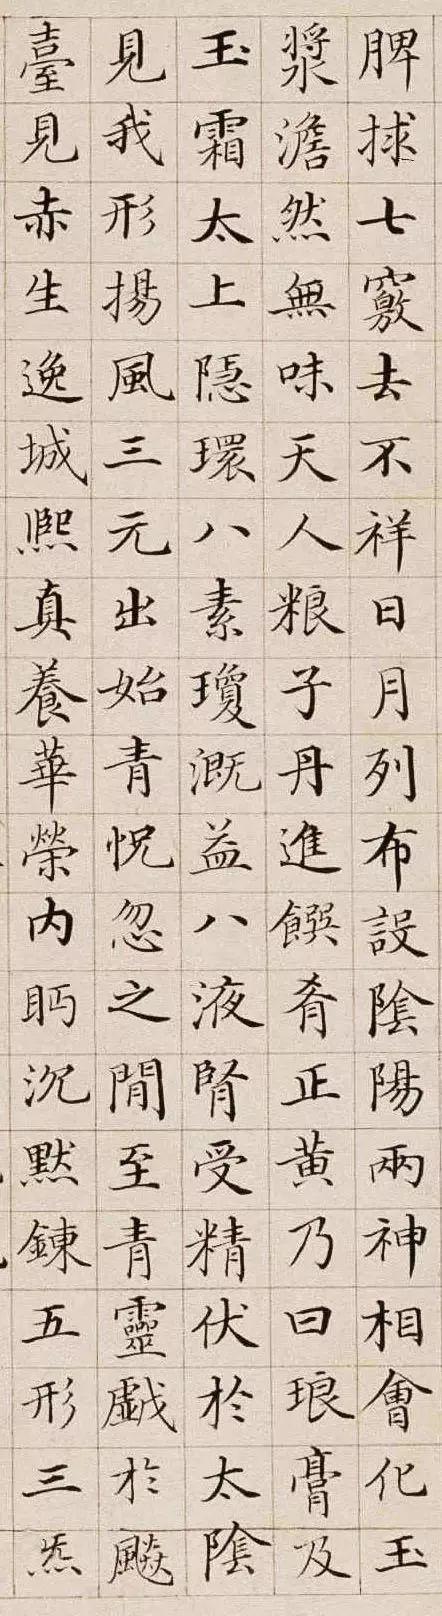 脾捄七竅去不祥日月列布設陰陽兩神相會化玉
漿澹然無味天人粮子丹進饌肴正黃乃曰琅膏及
玉霜太上隱環八素瓊溉益八液腎受精伏於太陰
見我形揚風三元出始青怳忽之間至青靈戲於飈
臺見赤生逸城熙真養華榮内眄沉默鍊五形三炁